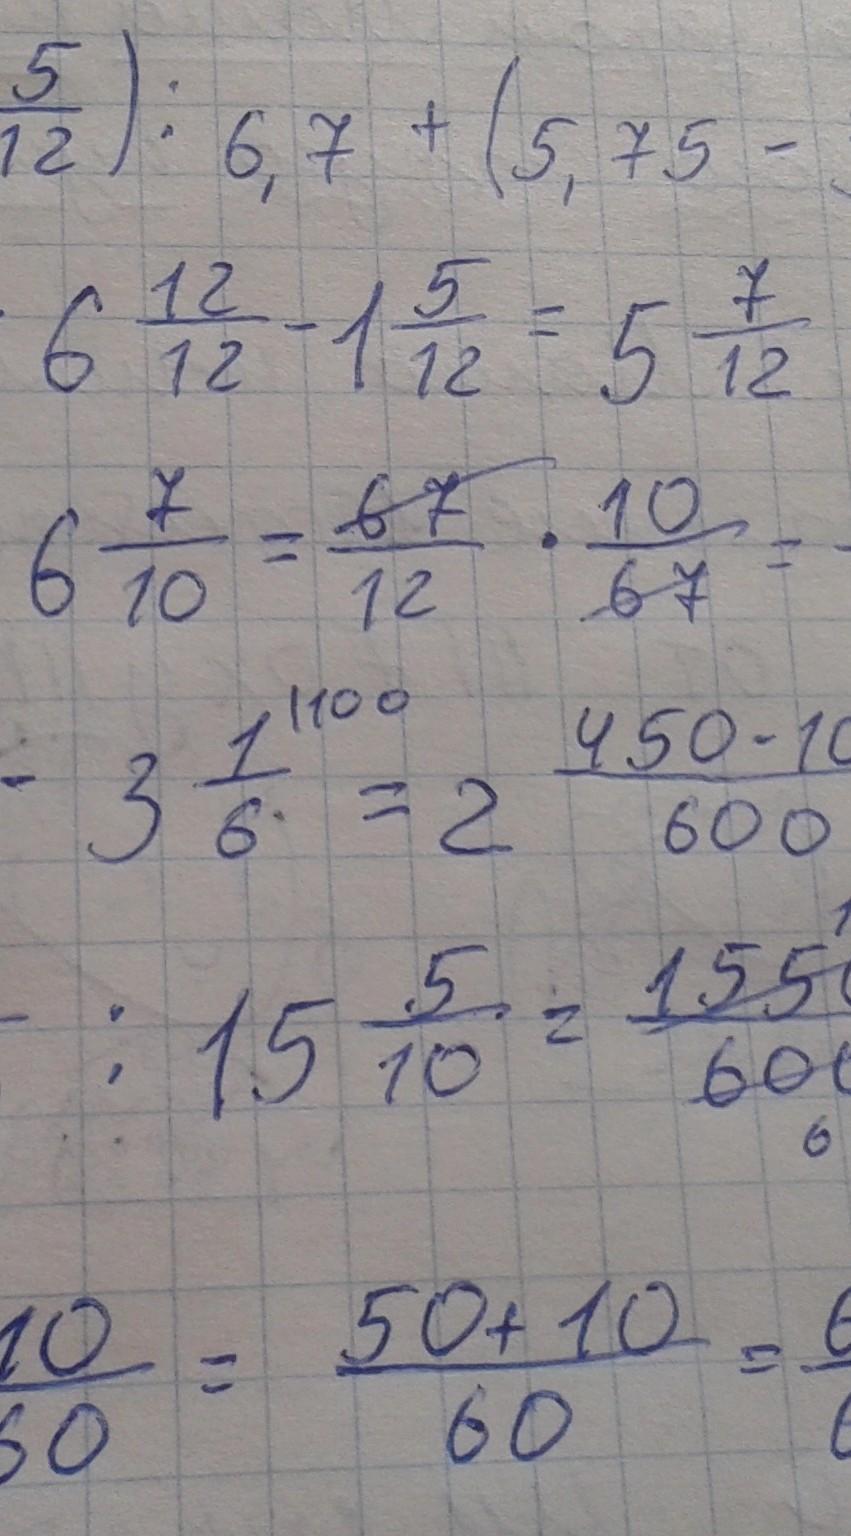 5/12) : 6,7 + (5,75 -
6 12/12 - 1 5/12 = 5 7/12
6 7/10 = 67/12 · 10/67 =
- 3 1/6 |100 = 2 450-10/600
: 15 5/10 = 155/60
6
10/60 = 50+10/60 = 6/6